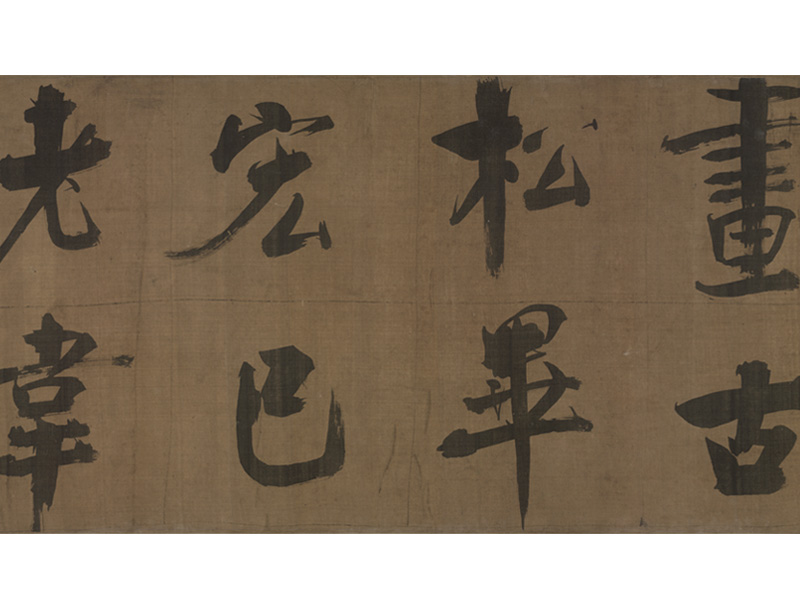 畫古
松畢
宏已
老韋